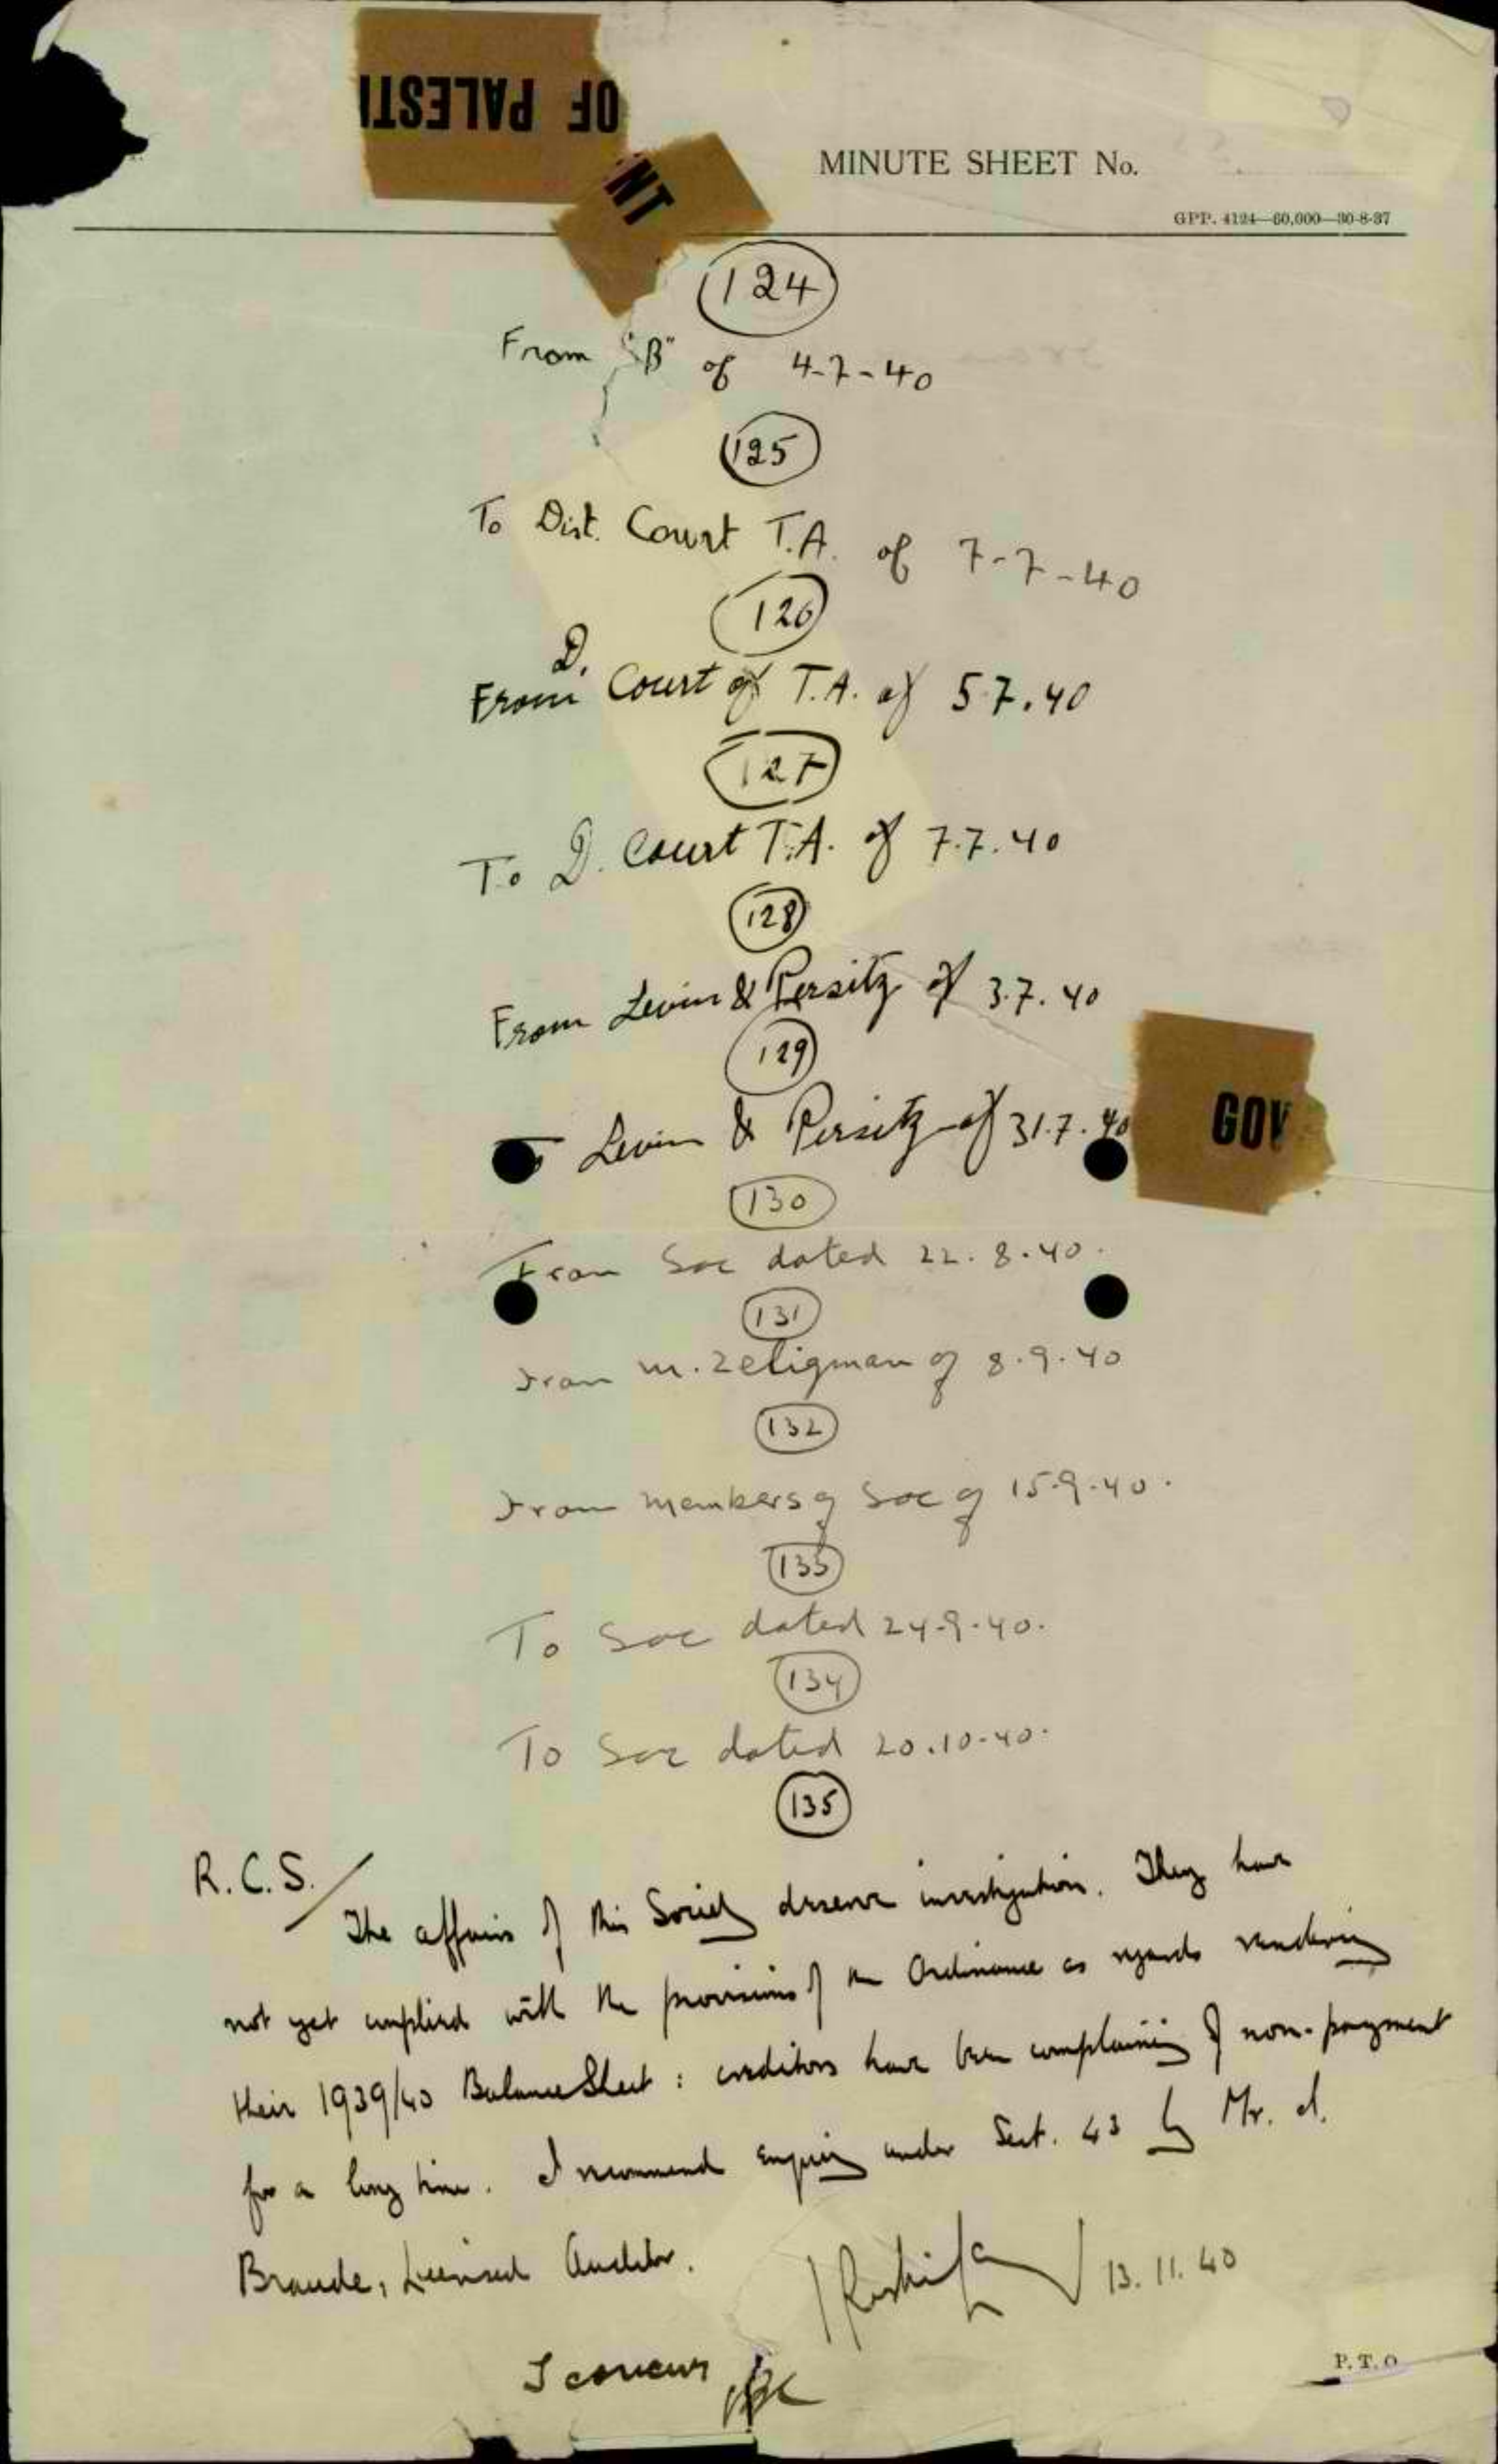 OF PALESTI
NT
MINUTE SHEET No.
GPP. 4124—60,000—30-8-37
124
From "B" of 4-7-40
125
To Dist. Court T.A. of 7-7-40
126
D.
From Court of T.A. of 5.7.40
127
To D. Court T.A. of 7.7.40
128
From Levin & Persitz of 3.7.40
129
To Levin & Persitz of 31.7.40
GOV
130
From Soc dated 22.8.40.
131
From M. Zeligman of 8.9.40
132
From members of Soc of 15.9.40.
133
To Soc dated 24.9.40.
134
To Soc dated 20.10.40.
135
R.C.S.
The affairs of this Society deserve investigation. They have
not yet complied with the provisions of the Ordinance as regards rendering
their 1939/40 Balance Sheet : creditors have been complaining of non-payment
for a long time. I recommend enquiry under Sect. 43 by Mr. I.
Braude, Licensed Auditor.
13.11.40
I concur
P.T.O